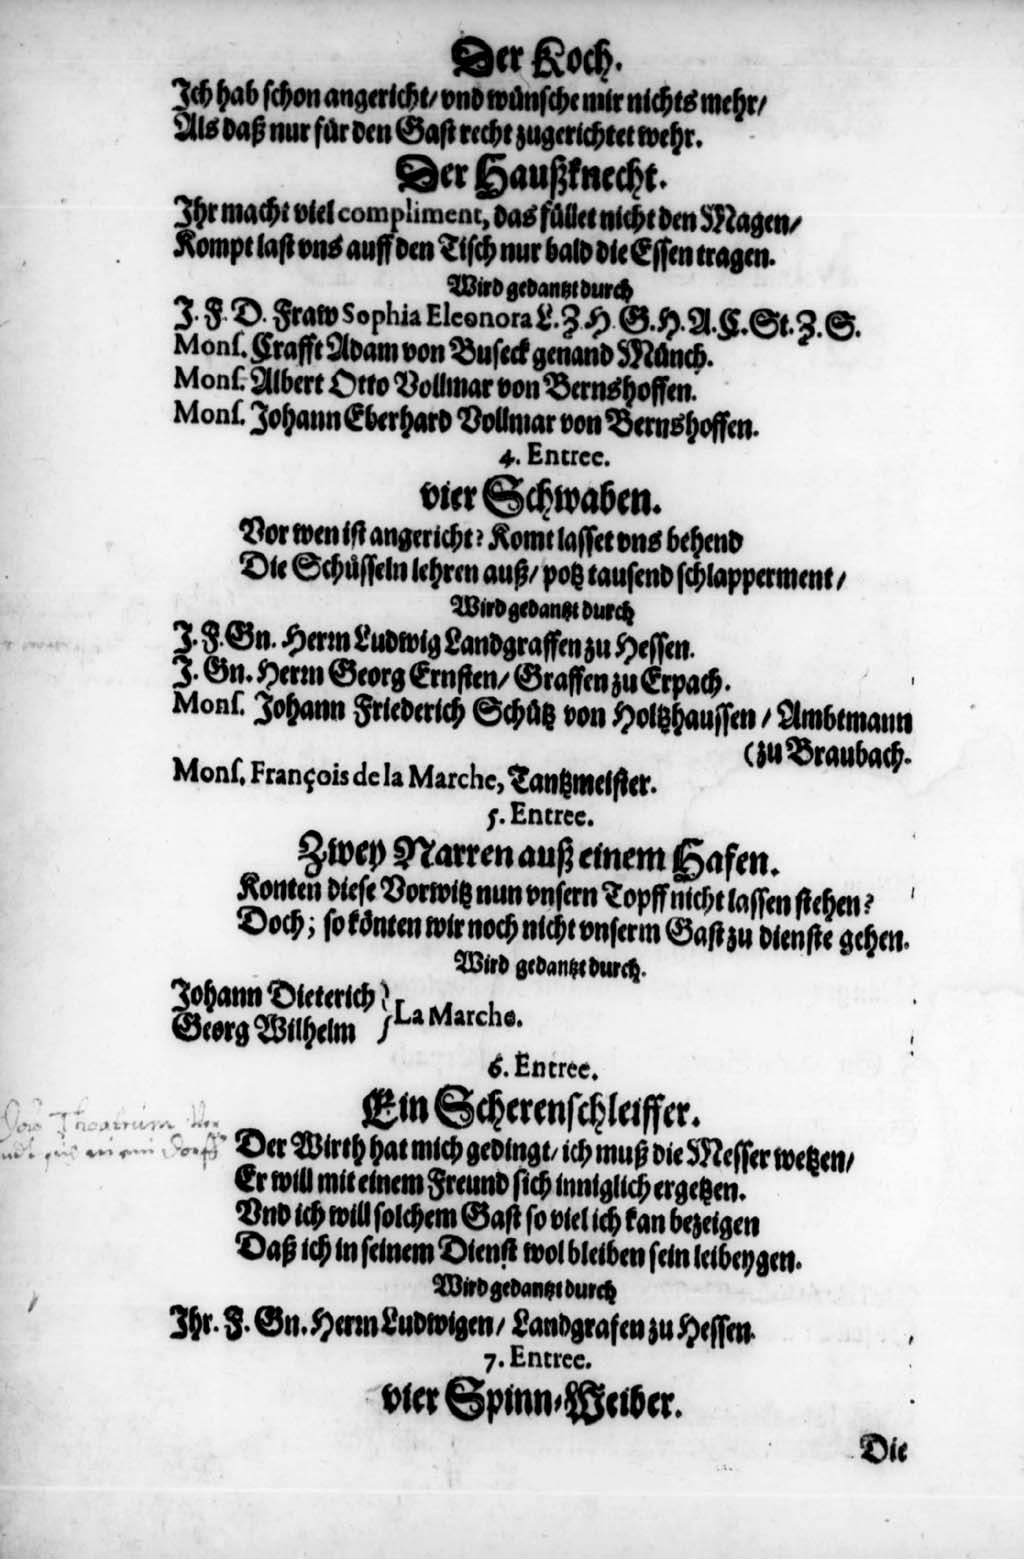 Der Koch.
Ich hab schon angericht/ vnd wünsche mir nichts mehr/
Als daß nur für den Gast recht zugerichtet wehr.
Der Haußknecht.
Ihr macht viel compliment, das füllet nicht den Magen/
Kompt last vns auff den Tisch nur bald die Essen tragen.
Wird gedantzt durch
J. F. D. Fraw Sophia Eleonora L. Z. H. G. H. A. C. St. Z. S.
Monſ. Crafft Adam von Buseck genand Münch.
Monſ. Albert Otto Vollmar von Bernshoffen.
Monſ. Johann Eberhard Vollmar von Bernshoffen.
4. Entree.
vier Schwaben.
Vor wen ist angericht? Komt lasset vns behend
Die Schüsseln lehren auß/ potz tausend schlapperment/
Wird gedantzt durch
J. F. Gn. Herrn Ludwig Landgraffen zu Hessen.
J. Gn. Herrn Georg Ernsten/ Graffen zu Erpach.
Monſ. Johann Friederich Schütz von Holtzhaussen/ Ambtmann
(zu Braubach.
Monſ. François de la Marche, Tantzmeister.
5. Entree.
Zwey Narren auß einem Hafen.
Konten diese Vorwitz nun vnsern Topff nicht lassen stehen?
Doch; so könten wir noch nicht vnserm Gast zu dienste gehen.
Wird gedantzt durch.
Johann Dieterich
Georg Wilhelm } La Marche.
6. Entree.
Ein Scherenschleiffer.
Theatrum
ein dorff
Der Wirth hat mich gedingt/ ich muß die Messer wetzen/
Er will mit einem Freund sich inniglich ergetzen.
Vnd ich will solchem Gast so viel ich kan bezeigen
Daß ich in seinem Dienst wol bleiben sein leibeygen.
Wird gedantzt durch
Ihr. F. Gn. Herrn Ludwigen/ Landgrafen zu Hessen.
7. Entree.
vier Spinn-Weiber.
Die